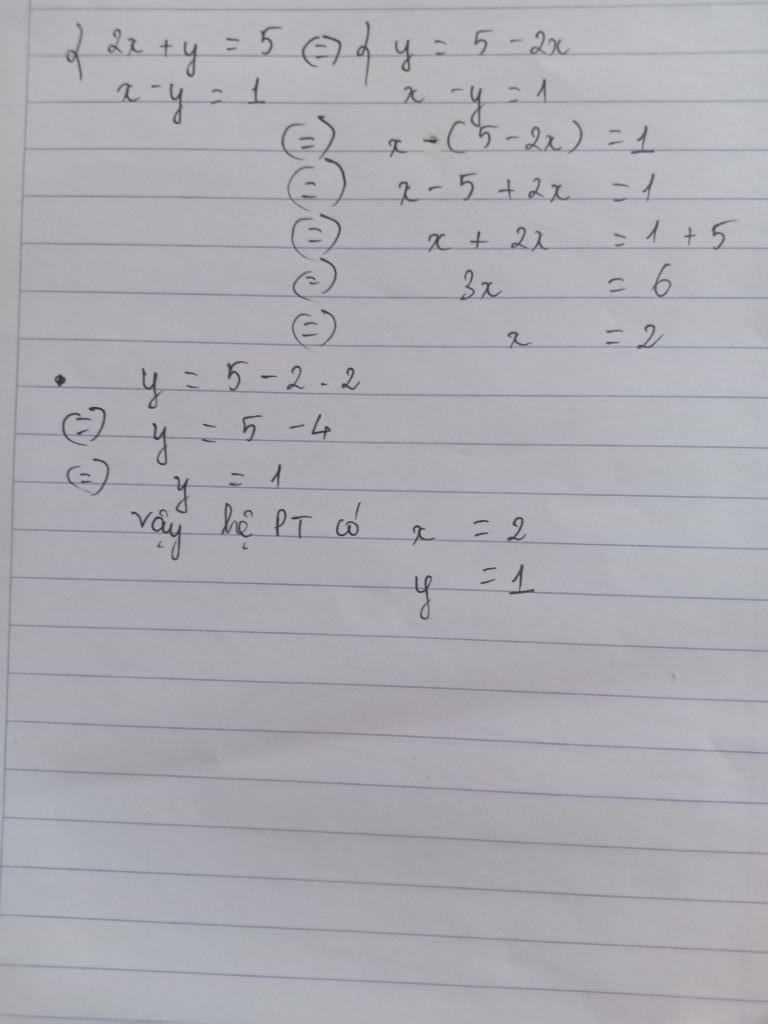 { 2x + y = 5 (=) { y = 5 - 2x
x - y = 1 x - y = 1
(=) x - (5 - 2x) = 1
(=) x - 5 + 2x = 1
(=) x + 2x = 1 + 5
(=) 3x = 6
(=) x = 2
• y = 5 - 2 . 2
(=) y = 5 - 4
(=) y = 1
vậy hệ PT có x = 2
y = 1